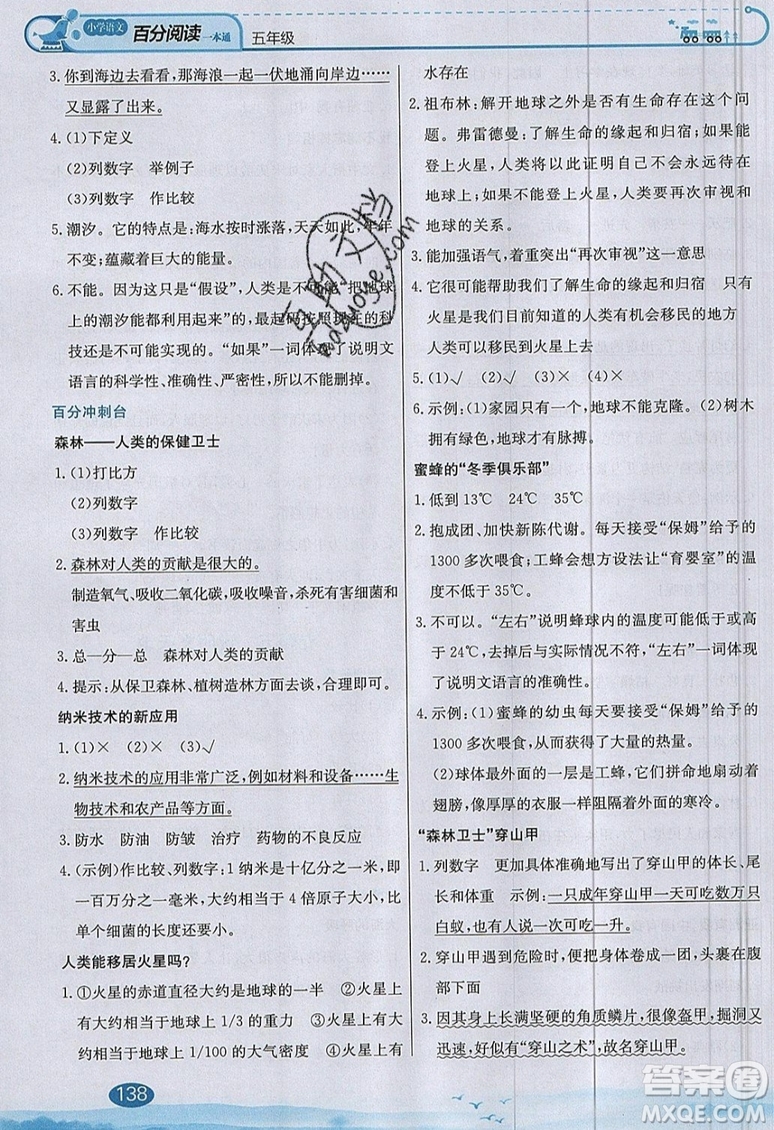 小学语文 百分阅读 一本通 五年级
3. 你到海边去看看，那海浪一起一伏地涌向岸边……
又显露了出来。
4. (1)下定义
(2)列数字 举例子
(3)列数字 作比较
5. 潮汐。它的特点是：海水按时涨落，天天如此，年年
不变；蕴藏着巨大的能量。
6. 不能。因为这只是“假设”，人类是不可能“把地球
上的潮汐能都利用起来”的，最起码按照现在的科
技还是不可行的。“如果”一词体现了说明文
语言的科学性、准确性、严密性，所以不能删掉。
百分冲刺台
森林——人类的保健卫士
1. (1)打比方
(2)列数字
(3)列数字 作比较
2. 森林对人类的贡献是很大的。
制造氧气、吸收二氧化碳，吸收噪音，杀死有害细菌和
害虫
3. 总—分—总 森林对人类的贡献
4. 提示：从保卫森林、植树造林方面去谈，合理即可。
纳米技术的新应用
1. (1)× (2)× (3)√
2. 纳米技术的应用非常广泛，例如材料和设备……生
物技术和农产品等方面。
3. 防水 防油 防皱 治疗 药物的不良反应
4. (示例)作比较、列数字：1 纳米是十亿分之一米，即
一百万分之一毫米，大约相当于 4 倍原子大小，比
单个细菌的长度还要小。
人类能移居火星吗？
1. ①火星的赤道直径大约是地球的一半 ②火星上
大约相当于地球上 1/3 的重力 ③火星上有大约
相当于地球上 1/100 的大气密度 ④火星上有
水存在
2. 祖布林：解开地球之外是否有生命存在这个问
题。弗雷德曼：了解生命的缘起和归宿；如果能
登上火星，人类将以此证明自己不会永远待在
地球上；如果不能登上火星，人类又要再次审视和
地球的关系。
3. 能加强语气，着重突出“再次审视”这一意思
4. ①它很可能帮助我们了解生命的缘起和归宿 只有
火星是我们目前知道的人类有机会可以移民的
星球 ②人类可以移民到火星上去
5. (1)√ (2)√ (3)× (4)√
6. 示例：(1)家园只有一个，地球不能克隆。(2)树木
拥有绿色，地球才有脉搏。
蜜蜂的“冬季俱乐部”
1. 低到 13℃ 24℃ 35℃
2. 抱成团、加快新陈代谢。每天接受“保姆”给予的
1300 多次喂食；工蜂会想方设法让“育婴室”的温度
不低于 35℃。
3. 不可以。“左右”说明蜂球内的温度可能低于或高
于 24℃，去掉后与实际情况不符，“左右”一词体现
了说明文语言的准确性。
4. 示例：(1)蜜蜂的幼虫每天要接受“保姆”给予的
1300 多次喂食，从而获得大量的热量。
(2)球体最外面的一层是工蜂，它们拼命地扇动着
翅膀，厚厚的衣服一样阻隔外面的寒冷。
“森林卫士”穿山甲
1. 列数字 更具体准确地写出了穿山甲的体长、尾
长和体重 示例：一只成年穿山甲一天可吃数万只
白蚁，也有人说一次可吃一升。
2. 穿山甲遇到危险时，便把身体卷成一团，头裹在腹
部下面
3. 全身上下长满坚硬的角质鳞片，很像盔甲，掘洞又
迅速，好似有“穿山之术”，故名穿山甲。
138
答案圈
MXQE.COM